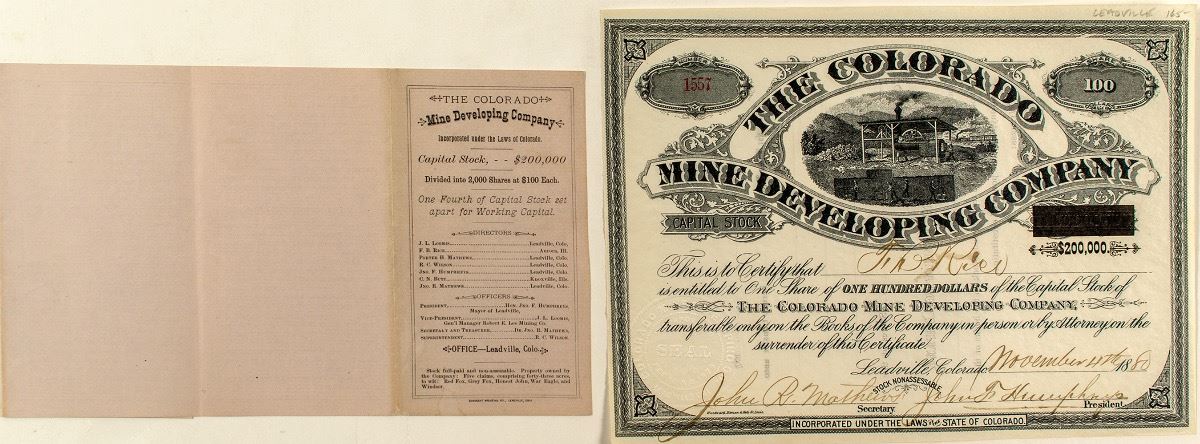 THE COLORADO
Mine Developing Company
Incorporated under the Laws of Colorado.
Capital Stock, - - $200,000
Divided into 2,000 Shares at $100 Each.
One Fourth of Capital Stock set
apart for Working Capital.
DIRECTORS
J. L. Loomis, Leadville, Colo.
F. B. Rice, Aurora, Ill.
Porter H. Mathews, Leadville, Colo.
R. C. Wilson, Leadville, Colo.
Jno. F. Humphreys, Leadville, Colo.
C. N. Knoxville, Ill.
Jno. R. Mathews, Leadville, Colo.
OFFICERS
President, Hon. Jno. F. Humphreys,
Mayor of Leadville,
Vice-President, J. L. Loomis,
Gen'l Manager Robert E. Lee Mining Co.
Secretary and Treasurer, Dr. Jno. R. Mathews,
Superintendent, R. C. Wilson.
OFFICE—Leadville, Colo.
Stock full-paid and non-assessable. Property owned by
the Company: Five claims, comprising forty-three acres,
to wit: Red Fox, Grey Fox, Honest John, War Eagle, and
Windsor.
LEADVILLE 165-
1557
100
THE COLORADO
MINE DEVELOPING COMPANY
CAPITAL STOCK
$200,000.
This is to Certify that Rice
is entitled to One Share of ONE HUNDRED DOLLARS of the Capital Stock of
THE COLORADO MINE DEVELOPING COMPANY,
transferable only on the Books of the Company in person or by Attorney on the
surrender of this Certificate
SEAL
Leadville, Colorado, November 1880
STOCK NONASSESSABLE
John R. Mathews John F. Humphreys
Secretary. President.
INCORPORATED UNDER THE LAWS OF THE STATE OF COLORADO.